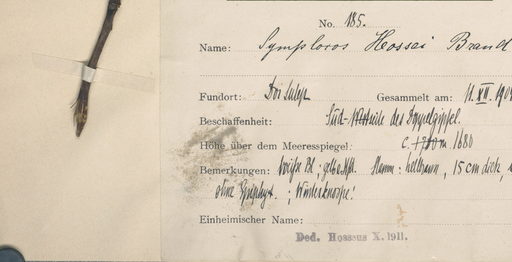 No. 185.
Name: Symplocos Hossei Brand
Fundort: Doi Sutep Gesammelt am: 11. XII. 190
Beschaffenheit: Süd-Westseite des Doppelgipfel
Höhe über dem Meeresspiegel: c. 1700 m 1680
Bemerkungen: weiße Bl, gelbe Stbf. Stamm: hellbraun, 15 cm dick,
ohne Epiphyt. ; Winterknospe!
Einheimischer Name:
Ded. Hosseus X. 1911.